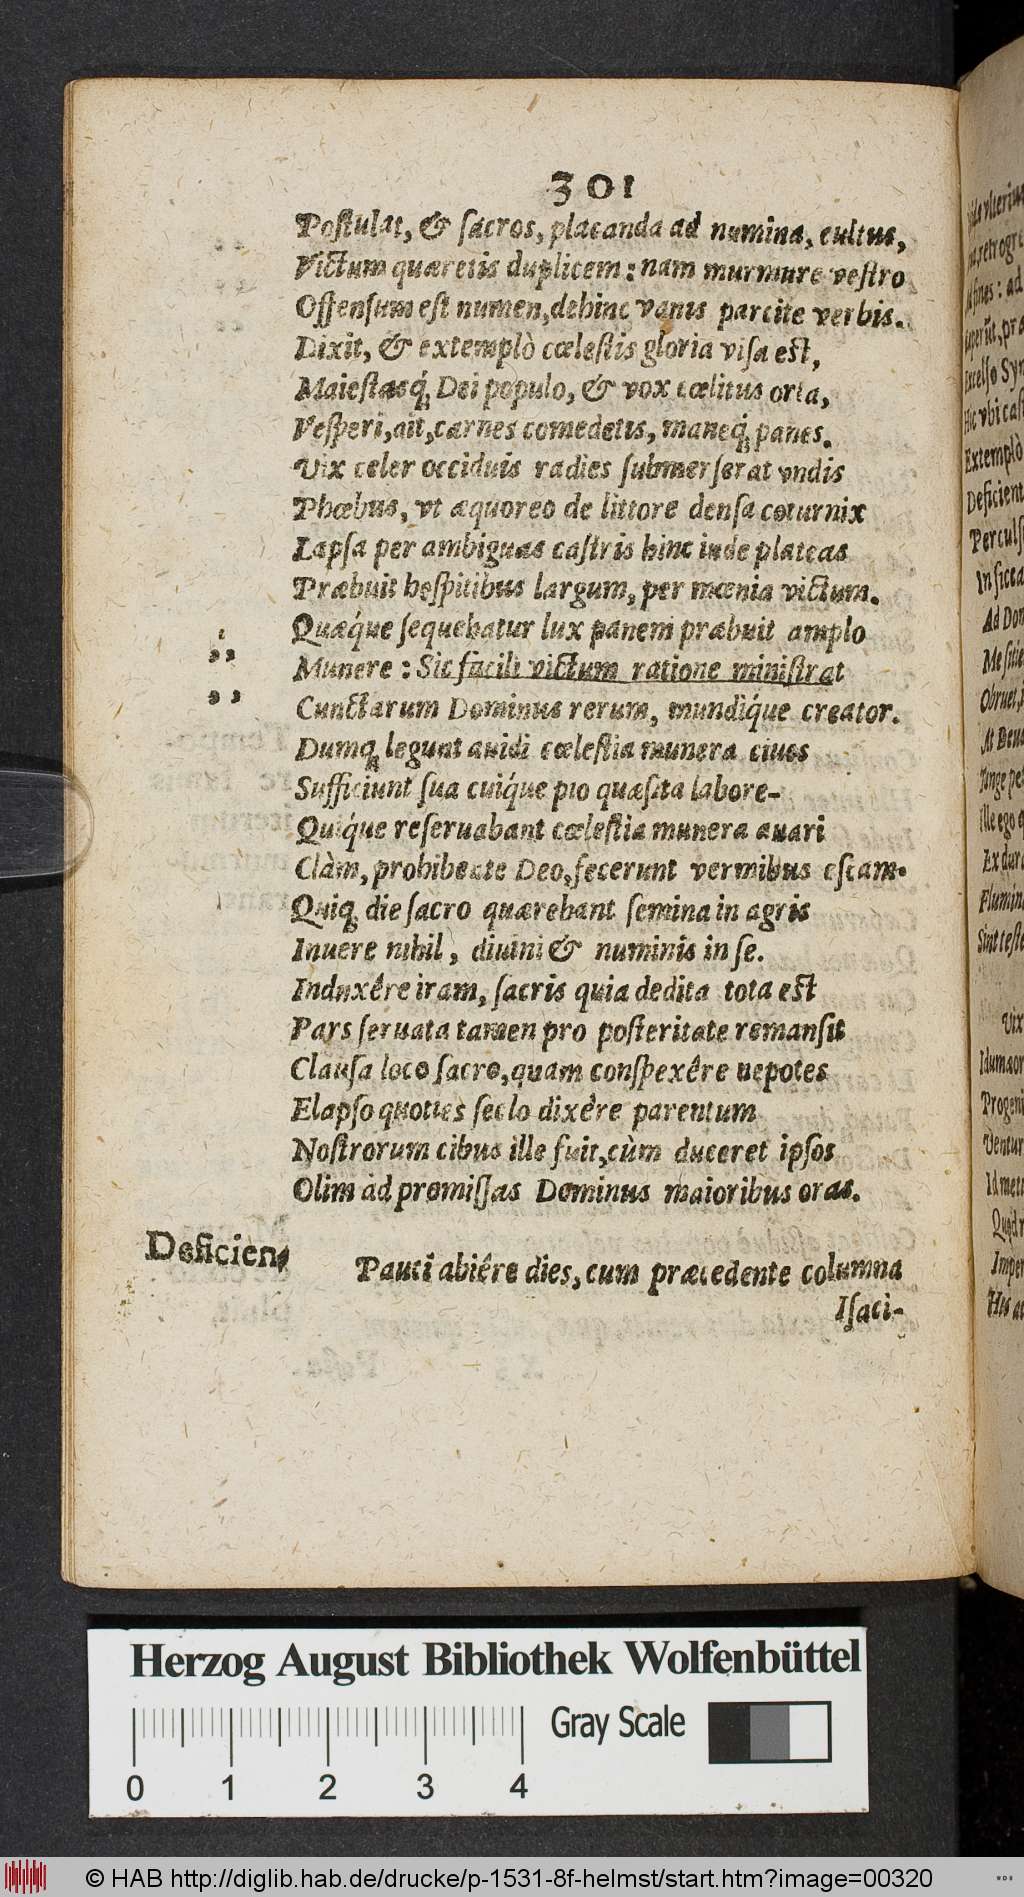 301
Postulat, & sacros, placanda ad numina, cultus,
Victum quæretis duplicem: nam murmure vestro
Offensum est numen, dehinc vanis parcite verbis.
Dixit, & extemplò cœlestis gloria visa est,
Maiestasq́; Dei populo, & vox cœlitus orta,
Vesperi, ait, carnes comedetis, maneq́; panes.
Vix celer occiduis radies submerserat vndis
Phœbus, vt æquoreo de littore densa coturnix
Lapsa per ambiguas castris hinc inde plateas
Præbuit hospitibus largum, per mœnia victum.
Quæq́ue sequebatur lux panem præbuit amplo
Munere: Sic facili victum ratione ministrat
Cunctarum Dominus rerum, mundiq́ue creator.
Dumq; legunt auidi cœlestia munera ciues
Sufficiunt sua cuiq́ue pio quæsita labore-
Quiq́ue reseruabant cœlestia munera auari
Clàm, prohibente Deo, fecerunt vermibus escam.
Quiq; die sacro quærebant semina in agris
Inuere nihil, diuini & numinis in se.
Induxêre iram, sacris quia dedita tota est
Pars seruata tamen pro posteritate remansit
Clausa loco sacro, quam conspexêre nepotes
Elapso quoties seclo dixêre parentum
Nostrorum cibus ille fuit, cùm duceret ipsos
Olim ad promissas Dominus maioribus oras.
Deficien,
Pauci abiêre dies, cum præcedente columna
Isaci-
Herzog August Bibliothek Wolfenbüttel
Gray Scale
0 1 2 3 4
© HAB http://diglib.hab.de/drucke/p-1531-8f-helmst/start.htm?image=00320